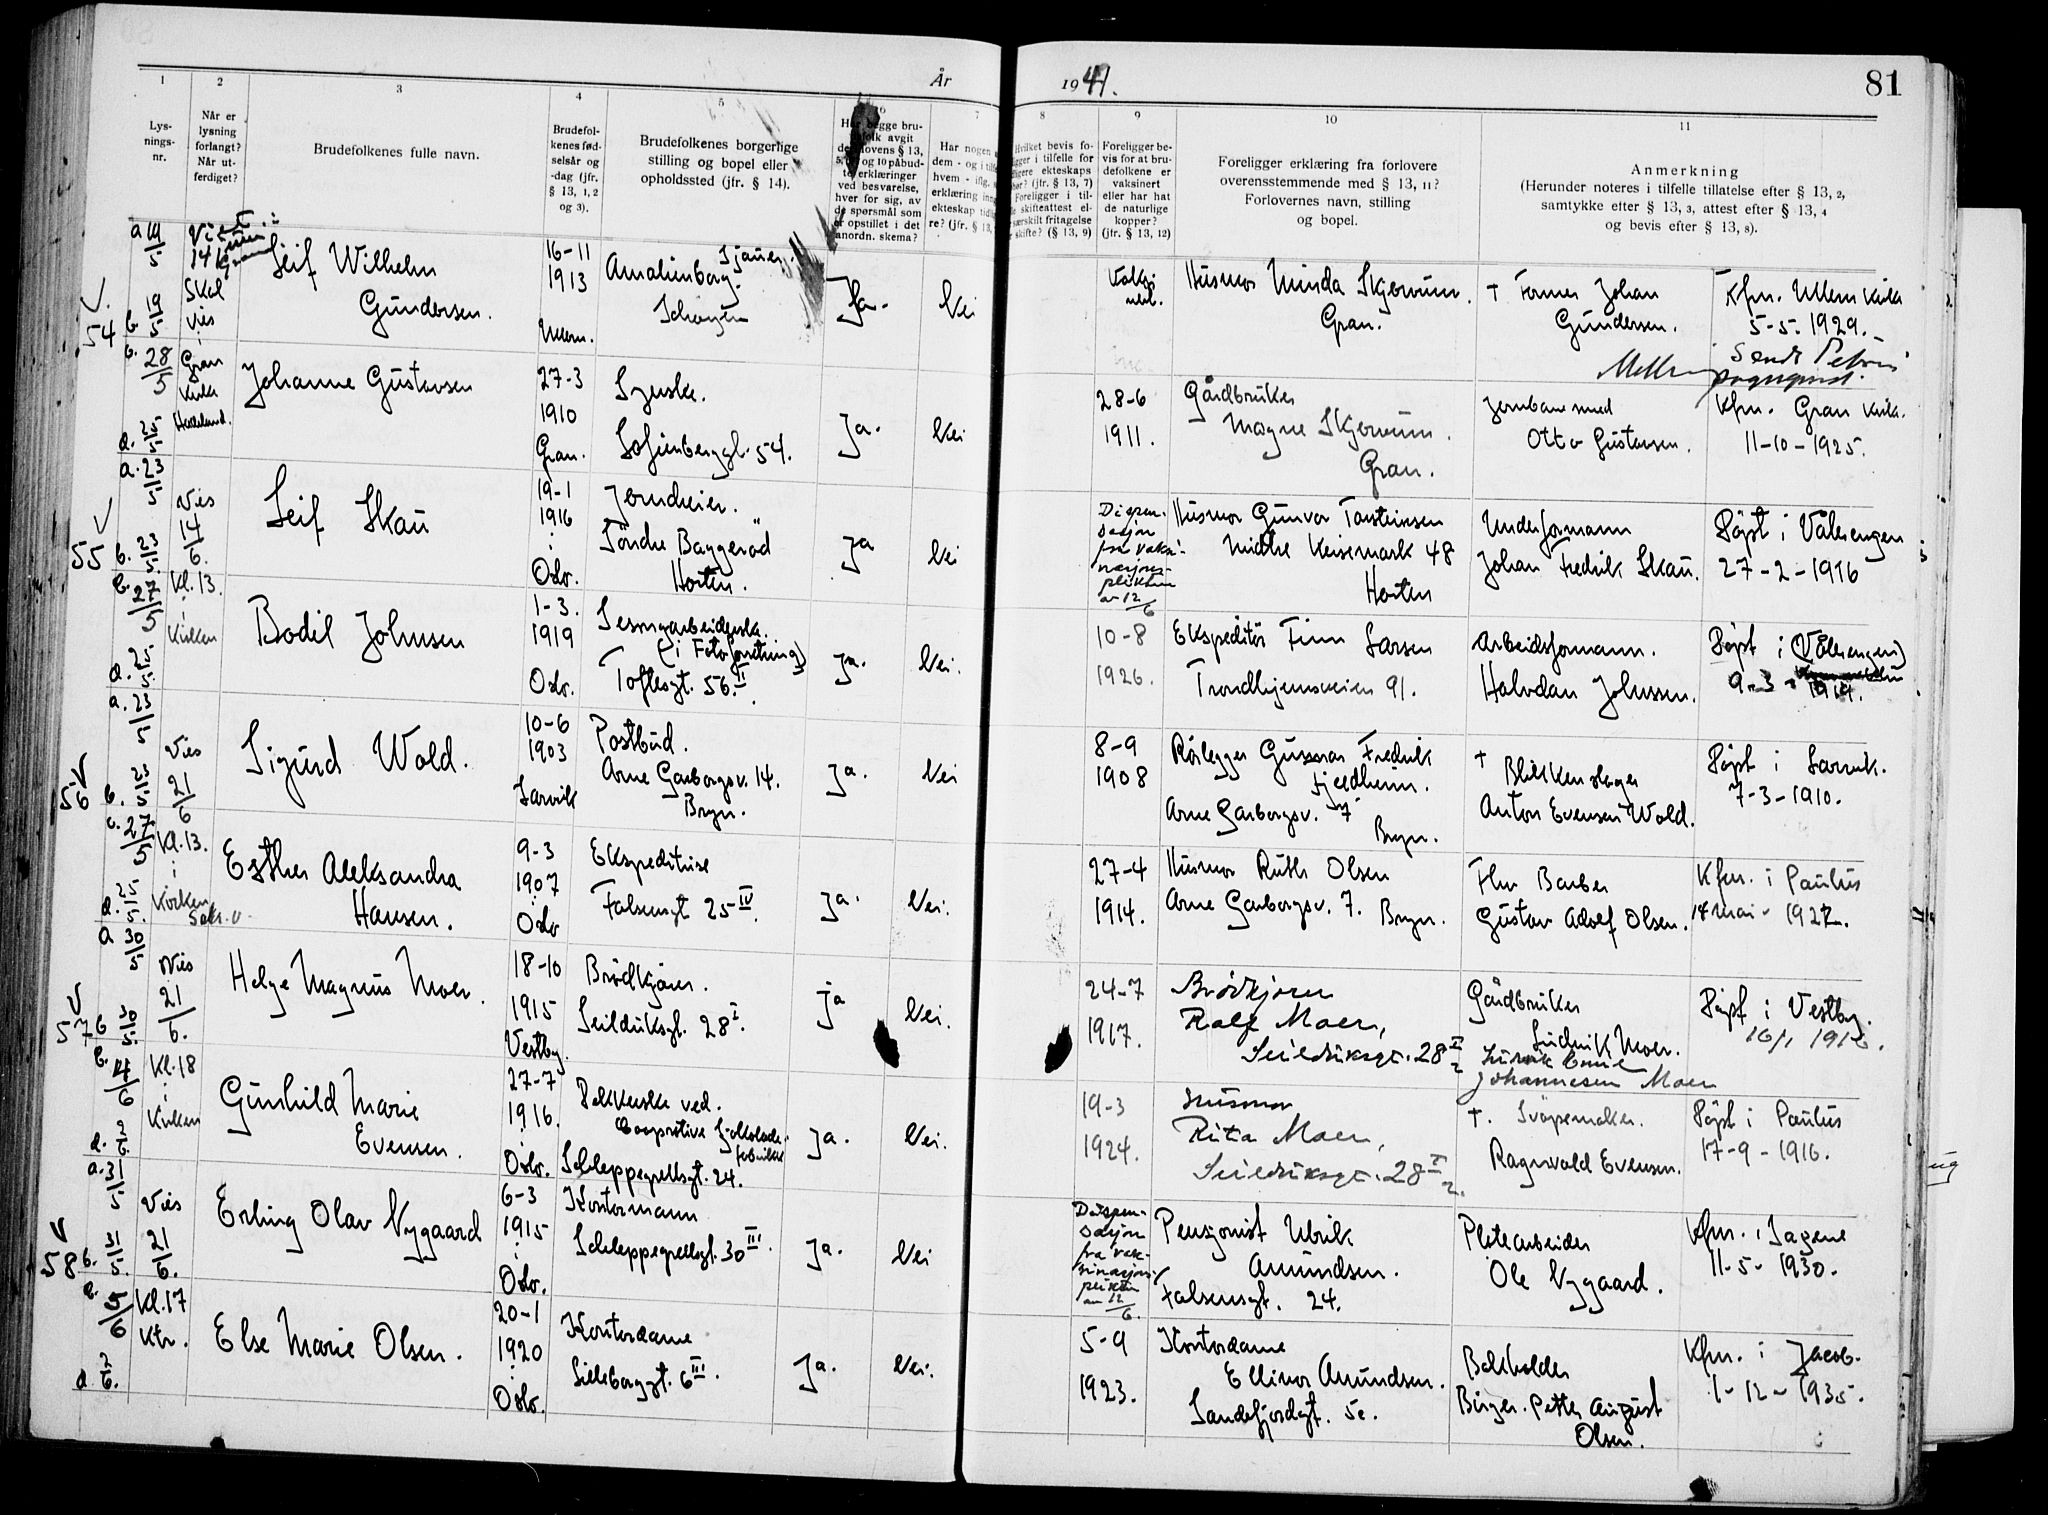 År 1941.
81
1
2
3
4
5
6
7
8
9
10
11
Lys-
nings-
nr.
Når er
lysning
forlangt?
Når ut-
ferdiget?
Brudefolkenes fulle navn.
Brudefol-
kenes fød-
selsår og
-dag (jfr.
§ 13, 1, 2
og 3).
Brudefolkenes borgerlige
stilling og bopel eller
opholdssted (jfr. § 14).
Har begge bru-
avgit
lovens § 13,
og 10 påbud-
erklæringer
ved besvarelse,
hver for sig, av
de spørsmål som
er opstillet i det
anordn. skema?
Har nogen
dem - og i
hvem - iflg.
erklæring
ekteskap
re? (jfr. § 13,
Hvilket bevis fo-
i tilfelle for
ekteskaps
? (jfr. § 13, 7)
Foreligger i til-
skifteattest el-
særskilt fritagelse
skifte? (§ 13, 9)
Foreligger be-
vis for at bru-
defolkene er
vaksinert
eller har hat
de naturlige
kopper?
(jfr. § 13, 12)
Foreligger erklæring fra forlovere
overensstemmende med § 13, 11?
Forlovernes navn, stilling
og bopel.
Anmerkning
(Herunder noteres i tilfelle tillatelse efter § 13, 2,
samtykke efter § 13, 3, attest efter § 13, 4
og bevis efter § 13, 8).
54
a 19/5
b. 19/5
c. 28/5
Skal
vies
i
Gran
Kirke
Hadeland.
Leif Wilhelm
Gundersen.
16-11
1913
Ullern.
Sjauer.
Amalienborg.
Ja.
Nei
Husmor Minda Skjervum.
Gran.
† Former Johan
Gundersen.
Kfm. Ullern Kirke
5-5-1929.
Johanne Gustavsen
27-3
1910
Gran.
Syerske.
Sofienberggt. 54.
Ja.
Nei
28-6
1911.
Gårdbruker
Magne Skjervum.
Gran.
Jernbanemed
Otto Gustavsen.
Kfm. Gran Kirke.
11-10-1925.
55
a. 23/5
b. 23/5
c. 27/5
Vies
14/6.
Kl. 13.
i
Kirken
Leif Skau
19-1
1916
i
Oslo.
Jerndreier.
Søndre Baggerød
Horten.
Ja
Nei
Dispen-
sasjon
fra vaksi-
nasjons-
plikten
av 12/6
Husmor Gunvor Torsteinsen
Midtre Keisemark 48
Horten
Underformann
Johan Fredrik Skau.
Døpt i Vålerengen
27-2-1916
Bodil Johnsen
1-3.
1919
Oslo.
Sesongarbeiderske.
(i Fotoforretning)
Toftesgt. 56 II.
Ja.
Nei.
10-8
1926.
Ekspeditør Finn Larsen
Trondhjemsveien 91.
Arbeidsformann.
Halvdan Johnsen.
Døpt i (Vålerengen)
9-3-1919.
56
a. 23/5
b. 23/5
c. 27/5
d. 25/5.
Vies
21/6
Kl. 13.
i
Kirken
Sigurd Wold.
10-6
1903
Larvik
Postbud.
Arne Garborgsv. 14.
Bryn.
Ja.
Nei
8-9
1908
Rørlegger Gunnar Fredrik
Fjeldheim.
Arne Garborgsv. 7
Bryn.
† Blikkenslager
Anton Evensen Wold.
Døpt i Larvik.
7-3-1910.
Esther Aleksandra
Hansen.
9-3
1907
i
Oslo
Ekspeditrise
Falsensgt 25 IV.
Ja.
Nei.
27-4
1914.
Husmor Ruth Olsen
Arne Garborgsv. 7. Bryn.
Fhv Barber
Gustav Adolf Olsen.
Kfm. i Paulus
14 mai - 1922.
57
a 30/5
b 30/5
c. 4/6
Vies
21/6.
Kl. 18
i
Kirken
Helge Magnus Moer.
18-10
1915
Vestby.
Brødkjører.
Seilduksgt. 28 I.
Ja
Nei.
24-7
1917.
Brødkjører
Rolf Moer,
Seilduksgt. 28 I
Gårdbruker
Ludvik Moer.
Ludvik Emil
Johannesen Moer
Døpt i Vestby.
16/1 1916.
Gunhild Marie
Evensen.
27-7
1916.
i
Oslo.
Pakkerske ved.
Cooprative Sjokolade-
fabrikk
Schleppegrellsgt. 24.
Ja.
Nei.
19-3
1924.
Husmor
Rita Moer,
Seilduksgt. 28 I
†. Svøpemaker.
Ragnvald Evensen.
Døpt i Paulus
17-9-1916.
58
a. 31/5
b. 31/5.
c. 5/6
d 2/6.
Vies
21/6.
Kl. 17
Ktr.
Erling Olav Nygaard
6-3
1915
i
Oslo.
Kontormann
Schleppegrellsgt. 30 III.
Ja.
Nei
Dispen-
sasjon
fra vak-
sinasjons-
plikten
av 12/6.
Pensjonist Ulrik
Amundsen.
Falsensgt. 24.
Platearbeider
Ole Nygaard.
Kfm. i Sagene
11-5-1930.
Else Marie Olsen.
20-1
1920
i
Oslo.
Kontordame
Lilleborggt. 6 III.
Ja.
Nei.
5-9
1923.
Kontordame
Ellinor Amundsen.
Sandefjordgt. 5c.
Bokholder
Birger Petter August
Olsen.
Kfm. i Jacob.
1-12-1935.